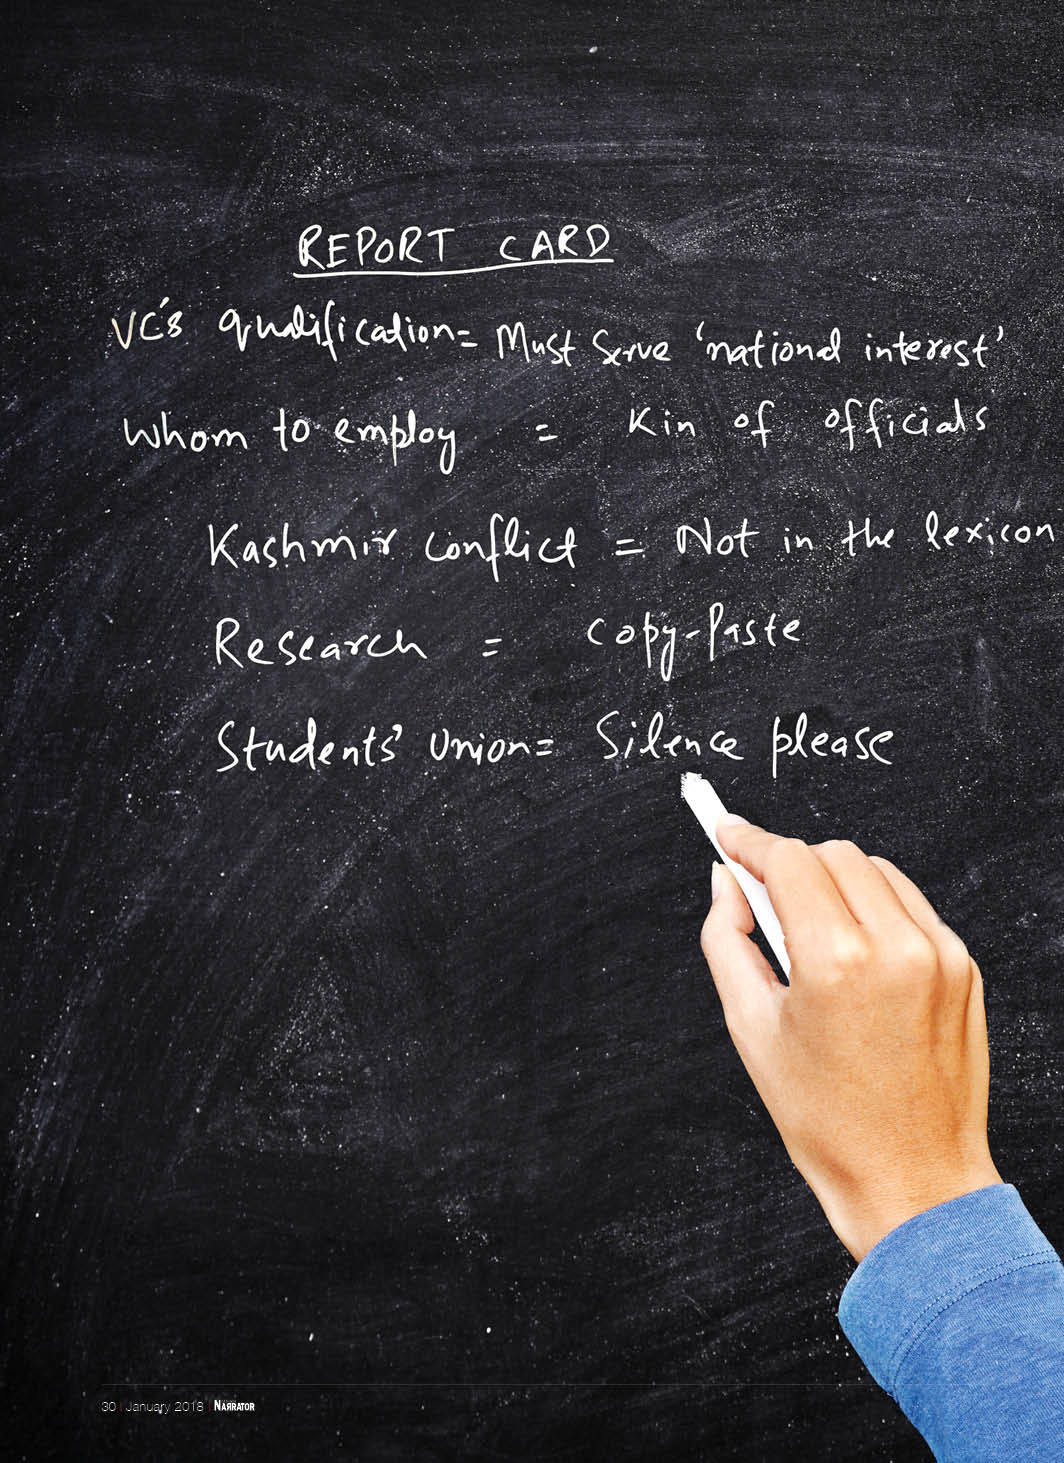 REPORT CARD
VC's qualification= Must Serve 'national interest'
Whom to employ = Kin of officials
Kashmir conflict = Not in the lexicon
Research = Copy-Paste
Students' Union= Silence please
30 | January 2018 | NARRATOR